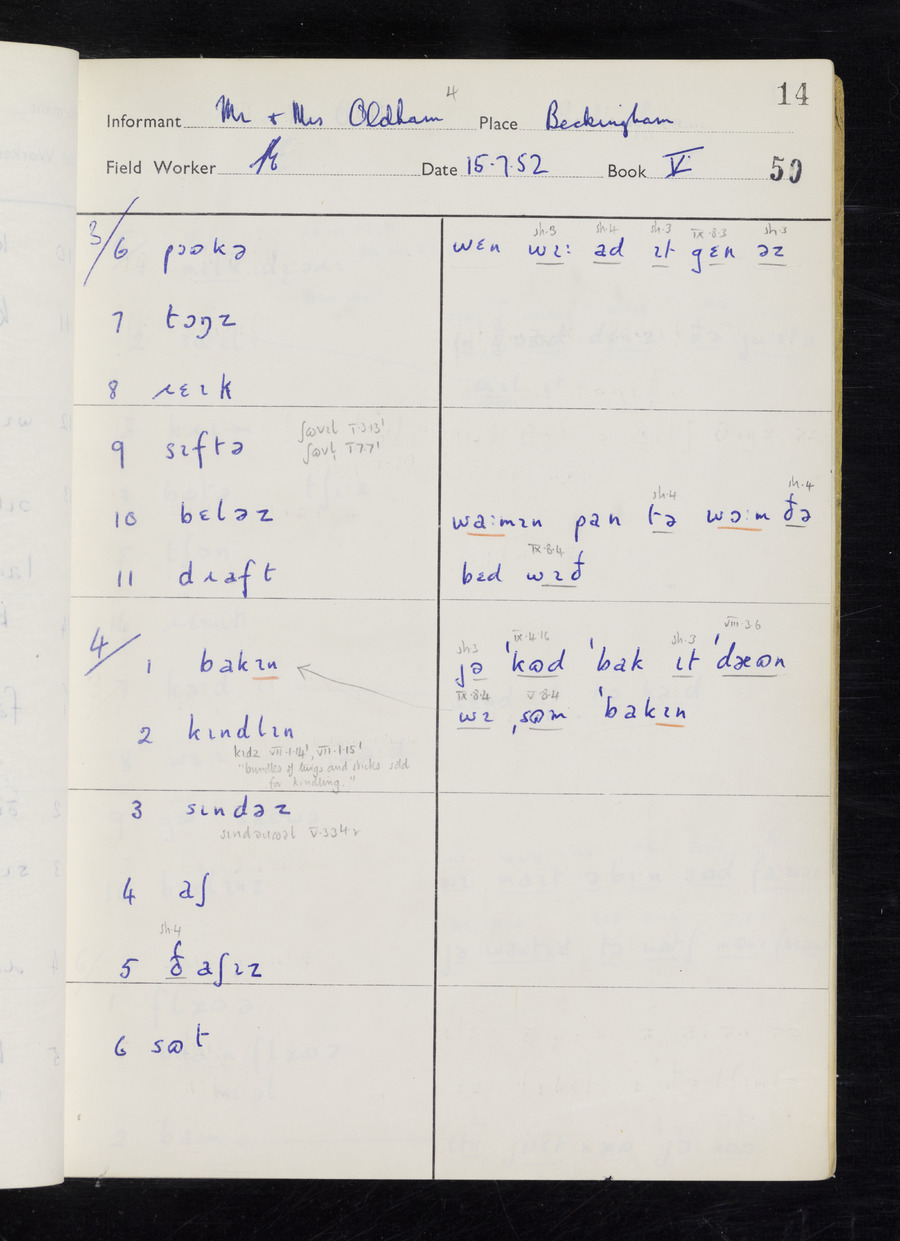 14
4
Informant Mr + Mrs Oldham Place Beckingham
Field Worker Date 15·7·52 Book V
50
3/
6 pɔəkə
sh·3 sh·4 sh·3 IX·8·3 sh·3
wɛn wɪ: ad ɪt gɛn əz
7 tɔŋz
8 ɹɛɪk
9 sɪftə
ʃɷvɪl V·3·13'
ʃɷvl̩ V·7·7'
10 bɛləz
sh·4 sh·4
wa:mɪn pan tə wɔ:m ðə
11 dɹaft
IX·8·4
bɛd wɪð
4/
1 bakɪn
sh3 IX·4·16 sh·3 VIII·3·6
jə 'kɷd 'bak ɪt 'dæɷn
IX·8·4 V·8·4
wɪ ˌsɷm 'bakɪn
2 kɪndlɪn
kɪdz VII·1·14', VII·1·15'
"bundles of twigs and sticks sold
for kindling."
3 sɪndəz
4 aʃ
sh·4
5 ð aʃɪz
6 sɷt